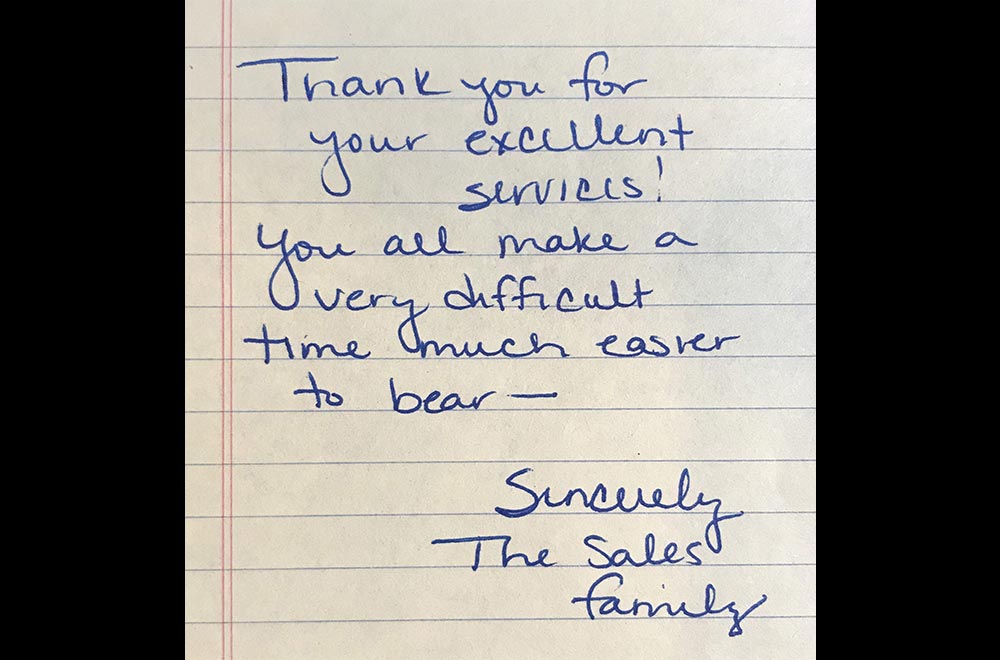 Thank you for
your excellent
services!
You all make a
very difficult
time much easier
to bear —
Sincerely
The Sales
family